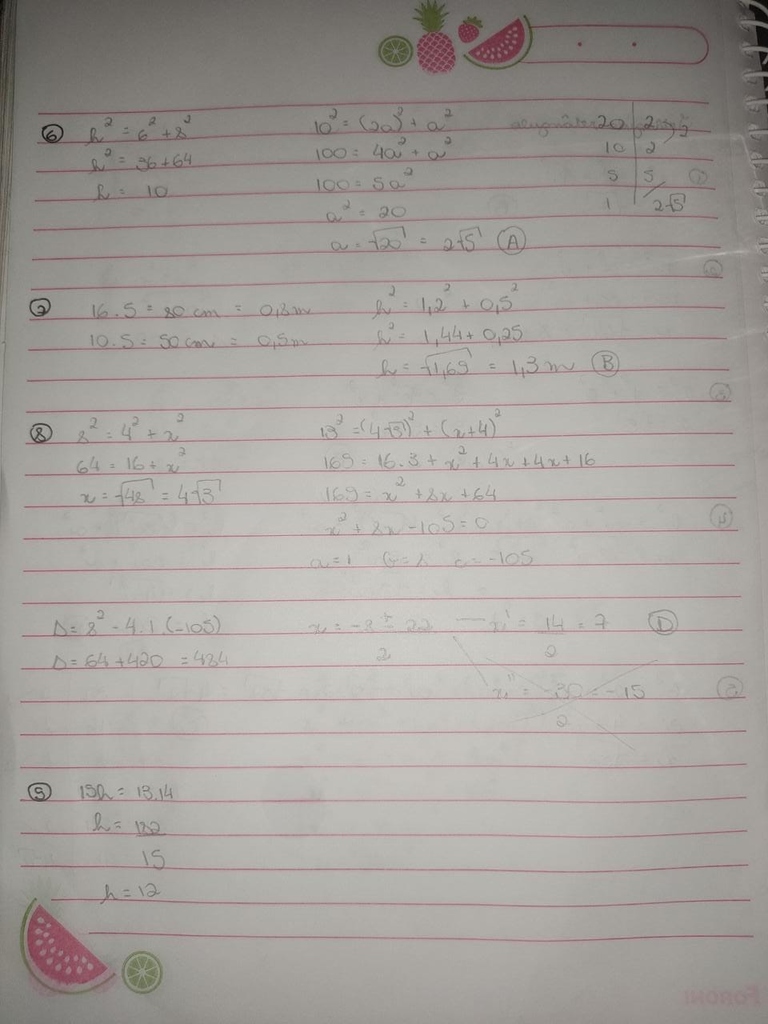 6
h² = 6² + 8²
h² = 36 + 64
h = 10
10² = (2a)² + a²
100 = 4a² + a²
100 = 5a²
a² = 20
a = √20 = 2√5 A
20 | 2
10 | 2
5 | 5
1 | 2√5
7
16.5 = 80 cm = 0,8m
10.5 = 50 cm = 0,5m
h² = 1,2² + 0,5²
h² = 1,44 + 0,25
h = √1,69 = 1,3 m B
8
8² = 4² + x²
64 = 16 + x²
x = √48 = 4√3
13² = (4√3)² + (x+4)²
169 = 16.3 + x² + 4x + 4x + 16
169 = x² + 8x + 64
x² + 8x - 105 = 0
a = 1 b = 8 c = -105
Δ = 8² - 4.1.(-105)
Δ = 64 + 420 = 484
x = -8 ± 22
2
x' = 14 = 7 D
2
x'' = -30 = -15
2
9
15h = 13.14
h = 182
15
h = 12